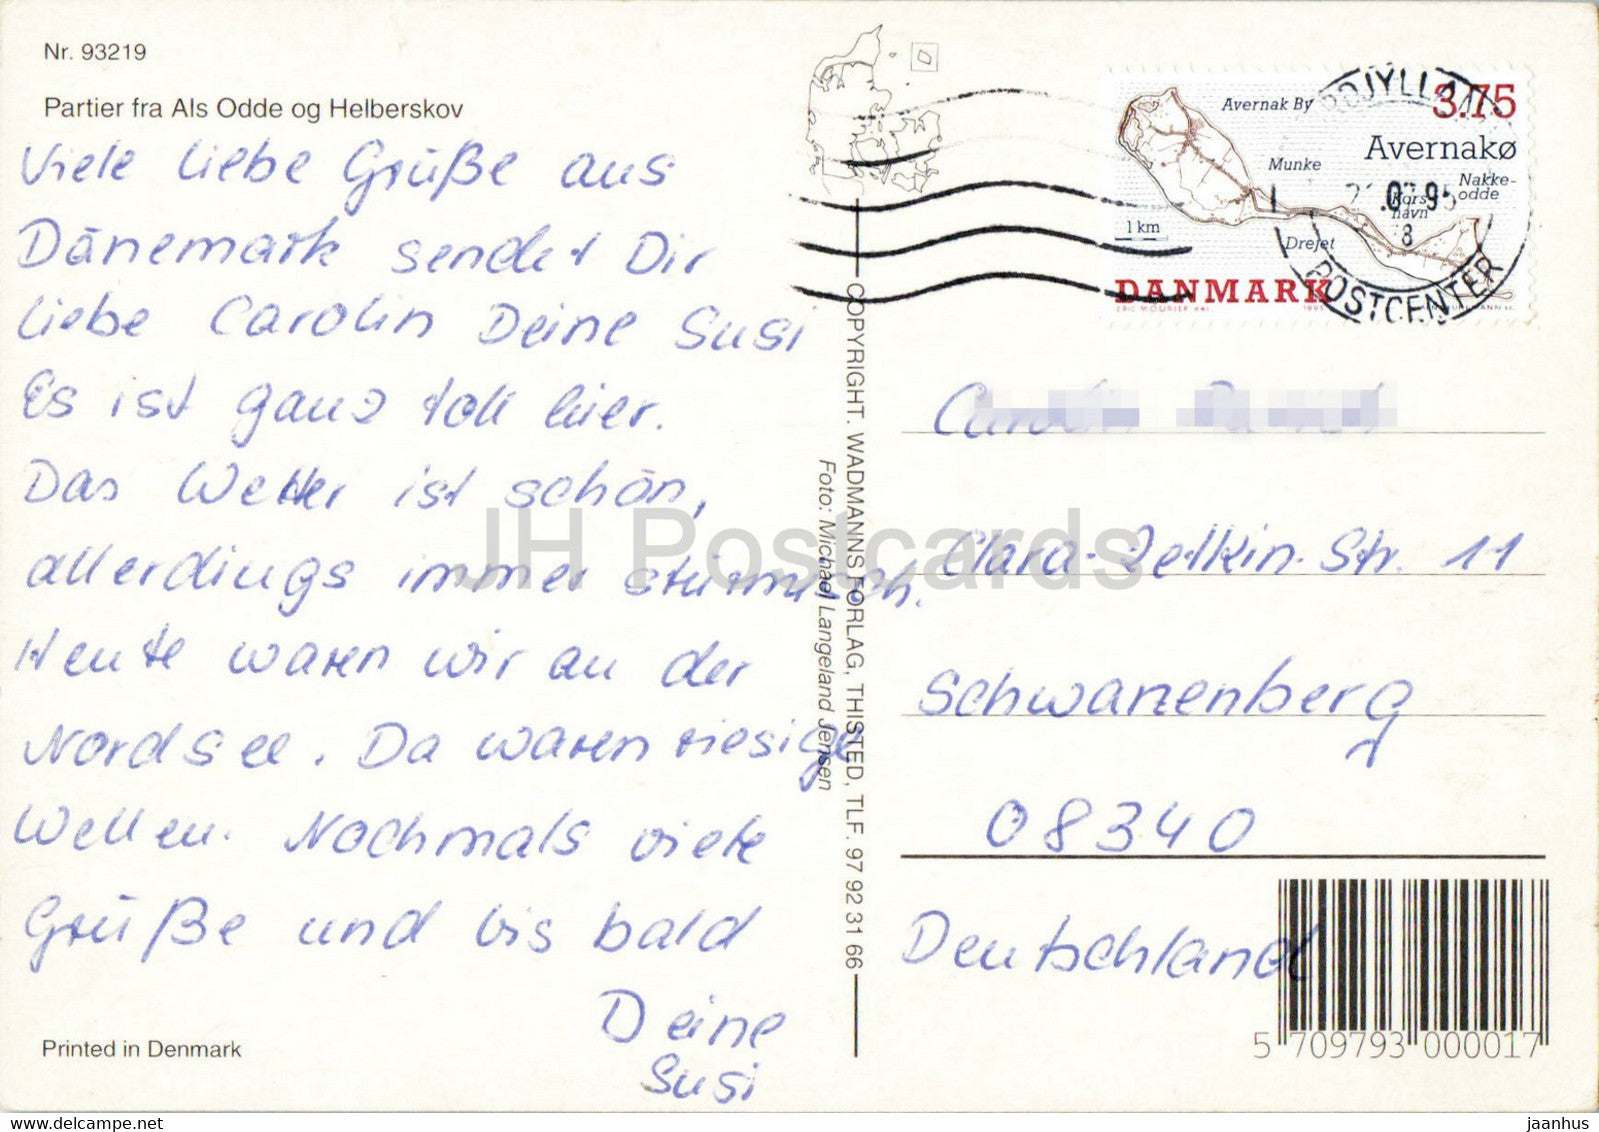 Nr. 93219
Partier fra Als Odde og Helberskov
Viele liebe Grüße aus
Dänemark sendet Dir
liebe Carolin Deine Susi
Es ist ganz toll hier.
Das Wetter ist schön,
allerdings immer stürmisch.
Heute waren wir an der
Nordsee. Da waren riesige
Wellen. Nochmals viele
Grüße und bis bald
Deine
Susi
Printed in Denmark
COPYRIGHT. WADMANNS FORLAG, THISTED, TLF. 97 92 31 66
Foto: Michael Langeland Jensen
3.75
Avernak By
Avernakø
Munke
Nakke-
odde
Kors
havn
Drejet
1 km
DANMARK
ERIC MOURIER del.
1995
.07.95
8
POSTCENTER
Clara-Zetkin-Str. 11
Schwarzenberg
08340
Deutschland
5 709793 000017
JH Postcards
www.delcampe.net
jaanhus